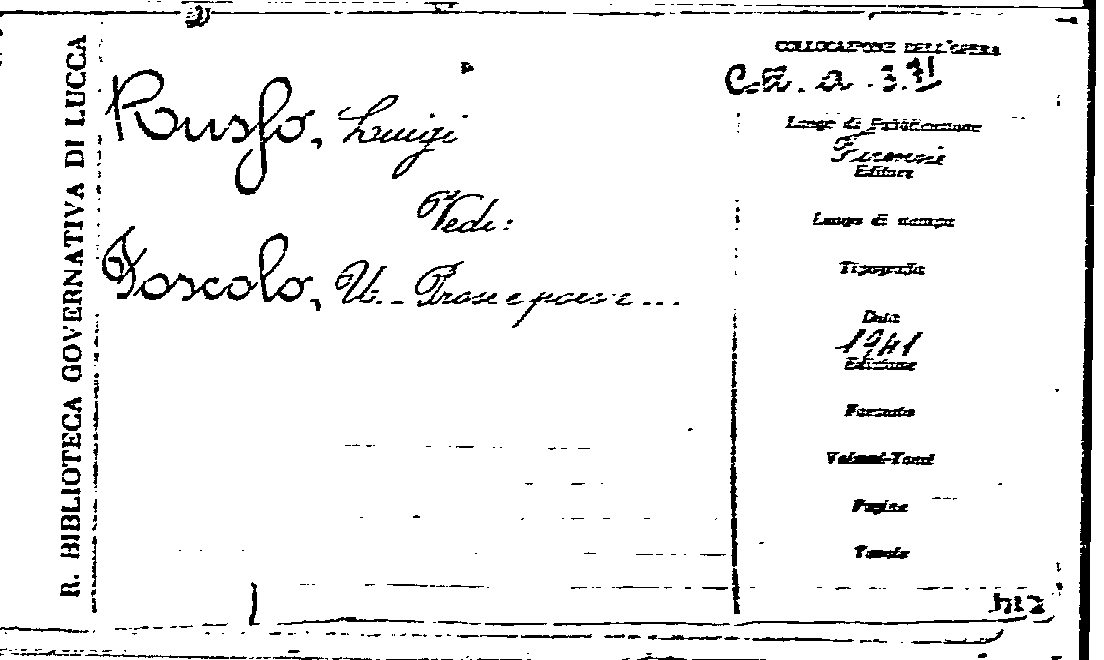 R. BIBLIOTECA GOVERNATIVA DI LUCCA
Russo, Luigi
Vedi:
Foscolo, U. - Prose e poesie ...
COLLOCAZIONE DELL'OPERA
a. 3.
Luogo di Pubblicazione
Firenze
Editore
Luogo di stampa
Tipografia
Data
1941
Edizione
Formato
Volumi-Tomi
Pagine
Tavole